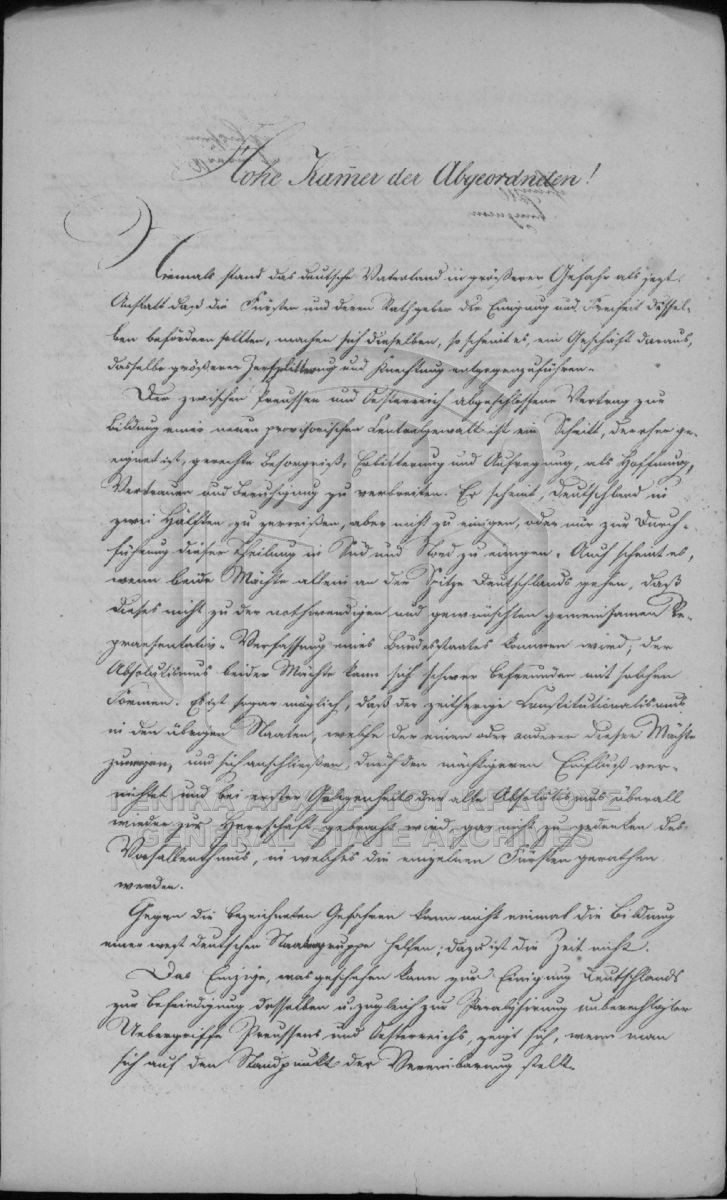 Hohe Kam̅er der Abgeordneten!
Niemals stand das deutsche Vaterland in größerer Gefahr als jezt.
Anstatt daß die Fürsten und deren Rathgeber die Einigung und Freiheit dessel-
ben befördern sollten, machen sich dieselben, so scheint es, ein Geschäft daraus,
dasselbe größerer Zersplitterung und Knechtung entgegenzuführen.
Der zwischen Preussen und Oesterreich abgeschlossene Vertrag zur
Bildung einer neuen provisorischen Centralgewalt ist ein Schritt, der eher ge-
eignet ist, gerechte Besorgniß, Erbitterung und Aufregung, als Hoffnung,
Vertrauen und Beruhigung zu verbreiten. Er scheint, Deutschland in
zwei Hälften zu zerreißen, aber nicht zu einigen, oder nur zur Durch-
führung dieser Theilung in Süd und Nord zu einigen. Auch scheint es,
wenn beide Mächte allein an der Spitze Deutschlands gehen, daß
dieses nicht zu der nothwendigen und gewünschten gemeinsamen Re-
praesentativ-Verfassung eines Bundesstaates kommen wird; der
Absolutismus beider Mächte kann sich schwer befreunden mit solchen
Formen. Es ist sogar möglich, daß der zeitherige Constitutionalismus
in den übrigen Staaten, welche der einen oder anderen dieser Mächte
und sich anschließen, durch den mächtigeren Einfluß ver-
nichtet und bei erster Gelegenheit der alte Absolutismus überall
wieder zur Herrschaft gebracht wird, gar nicht zu gedenken des
Vasallenthums, in welches die einzelnen Fürsten gerathen
werden.
Gegen die bezeichneten Gefahren kann nicht einmal die Bildung
einer west deutschen Staatengruppe helfen; dazu ist die Zeit nicht.
Das Einzige, was geschehen kann zur Einigung Deutschlands
zur Befriedigung desselben u. zugleich zur Paralysirung unberechtigter
Uebergriffe Preussens und Oesterreichs, zeigt sich, wenn man
sich auf den Standpunkt der Vereinbarung stellt.
ΓΕΝΙΚΑ ΑΡΧΕΙΑ ΤΟΥ ΚΡΑΤΟΥΣ
GENERAL STATE ARCHIVES